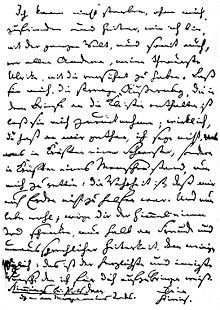 Ich kann nicht sterben, ohne mich,
zufrieden und heiter, wie ich bin,
mit der ganzen Welt, und somit auch,
vor allen Anderen, meine theuerste
Ulrike, mit dir versöhnt zu haben. Laß
sie mich, die strenge Äußerung, die in
dem Briefe an die Kleisten enthalten ist,
laß sie mich zurücknehmen; wirklich,
du hast an mir gethan, ich sage nicht,
was in Kräften einer Schwester, sondern
in Kräften eines Menschen stand, um
mich zu retten: die Wahrheit ist, daß mir
auf Erden nicht zu helfen war. Und nun
lebe wohl; möge dir der Himmel einen
Tod schenken, nur halb an Freude und
unaussprechlicher Heiterkeit, dem meinigen
gleich: das ist der herzlichste und innigste
Wunsch, den ich für dich aufzubringen weiß.
Stimmings bei Potsdam. Dein
d. – am Morgen meines Todes. Heinrich.